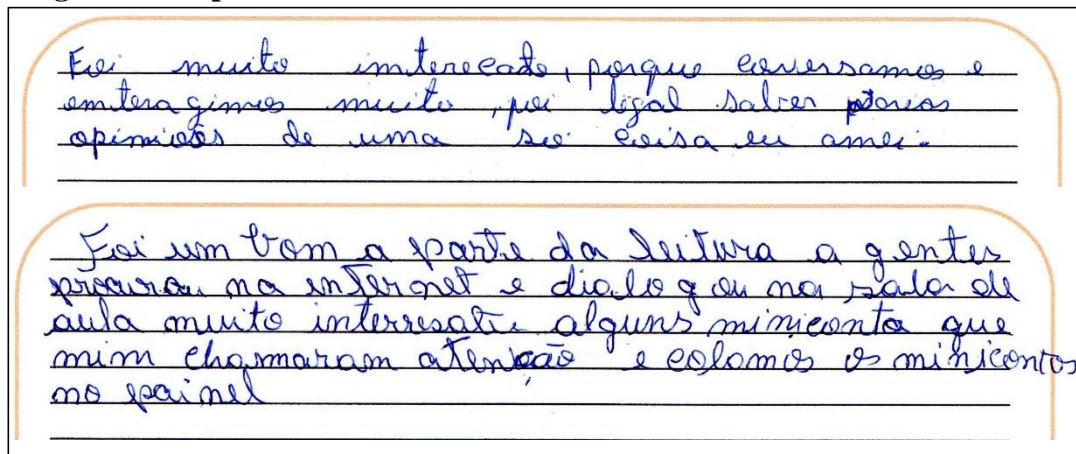 Foi muito intereçado, porque conversamos e
enteragimos muito, foi legal saber várias
opiniões de uma só coisa eu amei.
Foi um bom a parte da leitura a gentes
procurou na internet e dialogou na sala de
aula muito interresate alguns miniconta que
mim chamaram atenção e colamos os minicontos
no painel